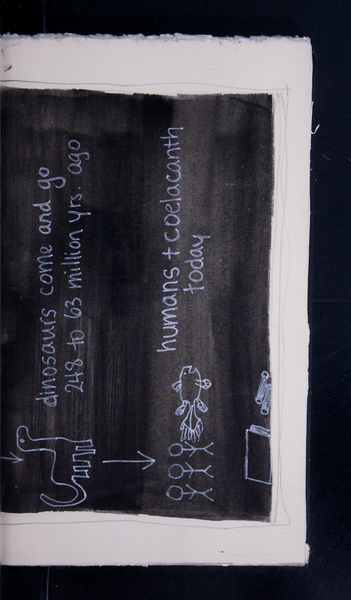 dinosaurs come and go
248 to 63 million yrs. ago
humans + coelacanth
today